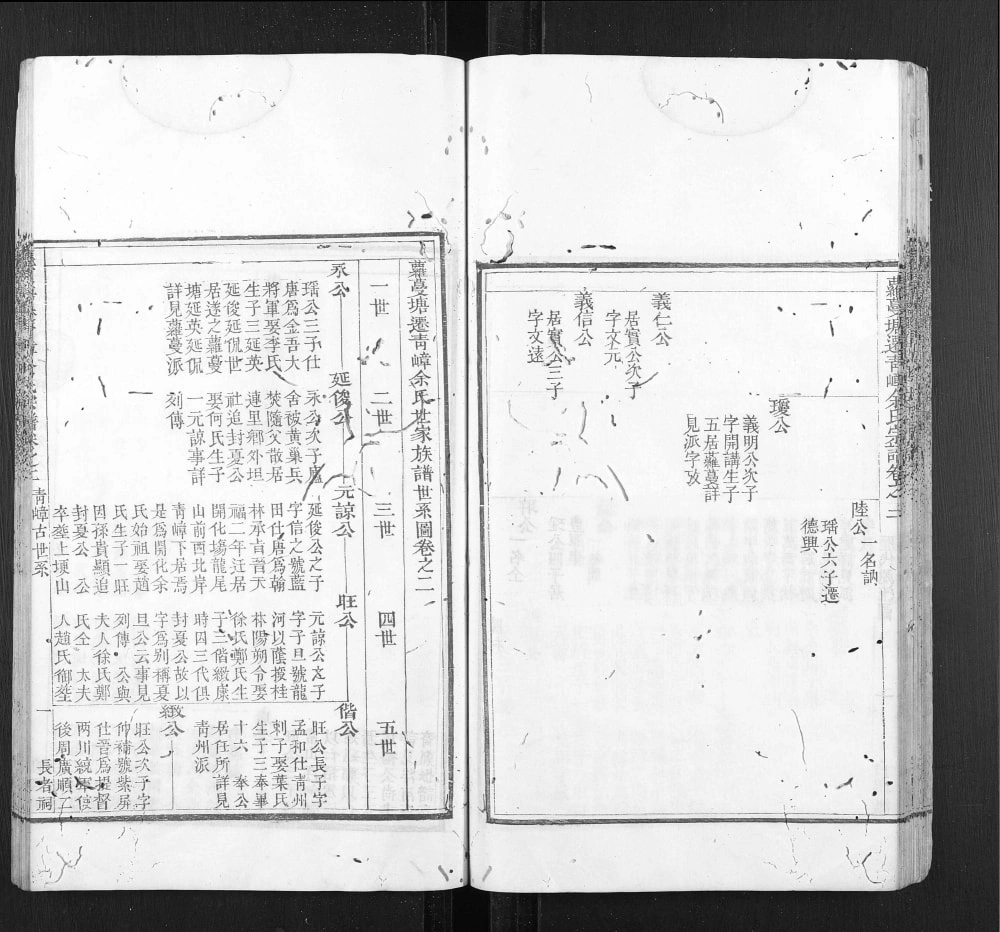 蘿蔓塘遷青嶂余氏宗譜卷之二
陸公一名訥
璠公六子遷
德興
瓊公
義明公次子
字開講生子
五居蘿蔓詳
見派字攷
義仁公
居實公次子
字文元
義信公
居實公三子
字文遠
蘿蔓塘遷青嶂余氏世家族譜世系圖卷之二
一世
二世
三世
四世
五世
永公
璠公三子仕
唐爲金吾大
將軍娶李氏
生子三延英
延俊延侃世
居遂之蘿蔓
塘延英延侃
詳見蘿蔓派
延俊公
永公次子廬
舍被黃巢兵
焚隨父散居
連里鄉外坦
社追封夏公
娶何氏生子
一元諒事詳
列傳
元諒公
延俊公之子
字信之號藍
田仕唐爲翰
林承旨晉天
福二年迁居
開化塲龍尾
山前西北岸
青嶂下居焉
是爲開化余
氏始祖娶趙
氏生子一旺
因孫貴顯追
封夏公 公
卒塟上坝山
旺公
元諒公之子
字子旦號龍
河以蔭授桂
林陽朔令娶
徐氏鄭氏生
子二偕緻康
時因三代俱
封夏公故以
字爲別稱夏
旦公云事見
列傳 公與
夫人徐氏鄭
氏仝 太夫
人趙氏御塟
偕公
旺公長子字
孟和仕青州
刺子娶葉氏
生子三奉畢
十六 奉公
居任所詳見
青州派
緻公
旺公次子字
仲補號紫屏
仕晉爲提督
两川統軍使
後周廣順二
青嶂古世系
長者祠